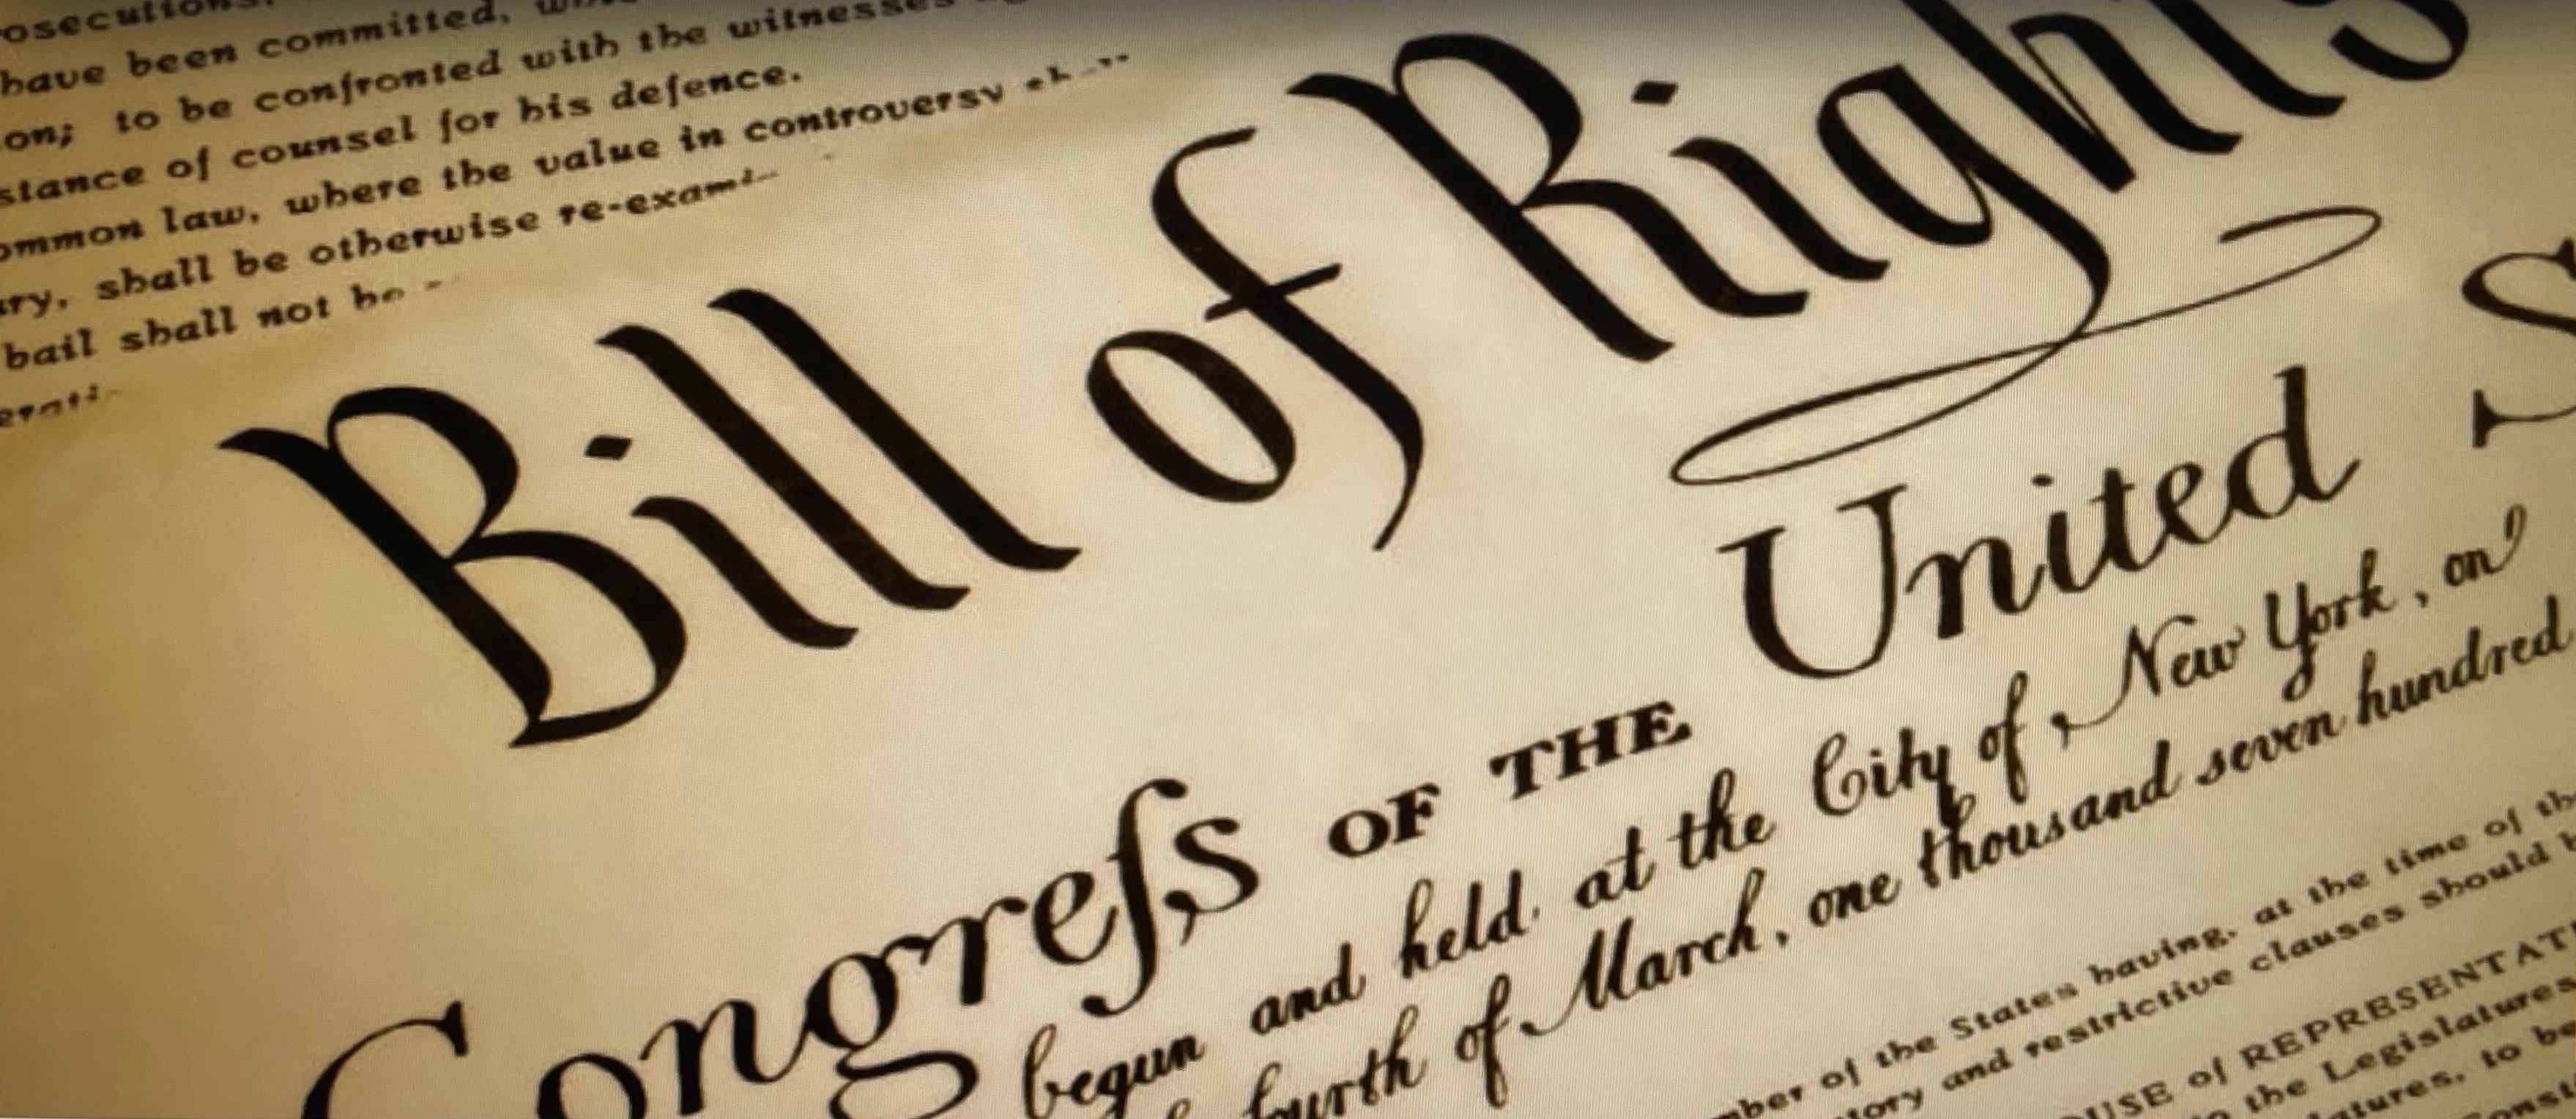 have been committed,
on; to be confronted with the witnesses
stance of counsel for his defence.
ommon law, where the value in controversy
ary, shall be otherwise re-exami
bail shall not be
Bill of Rights
Congreſs OF THE United S
begun and held at the City of New York, on
fourth of March, one thousand seven hundred
mber of the States having, at the time of th
tory and restrictive clauses should b
OUSE of REPRESENTATI
the Legislatures
atures, to be